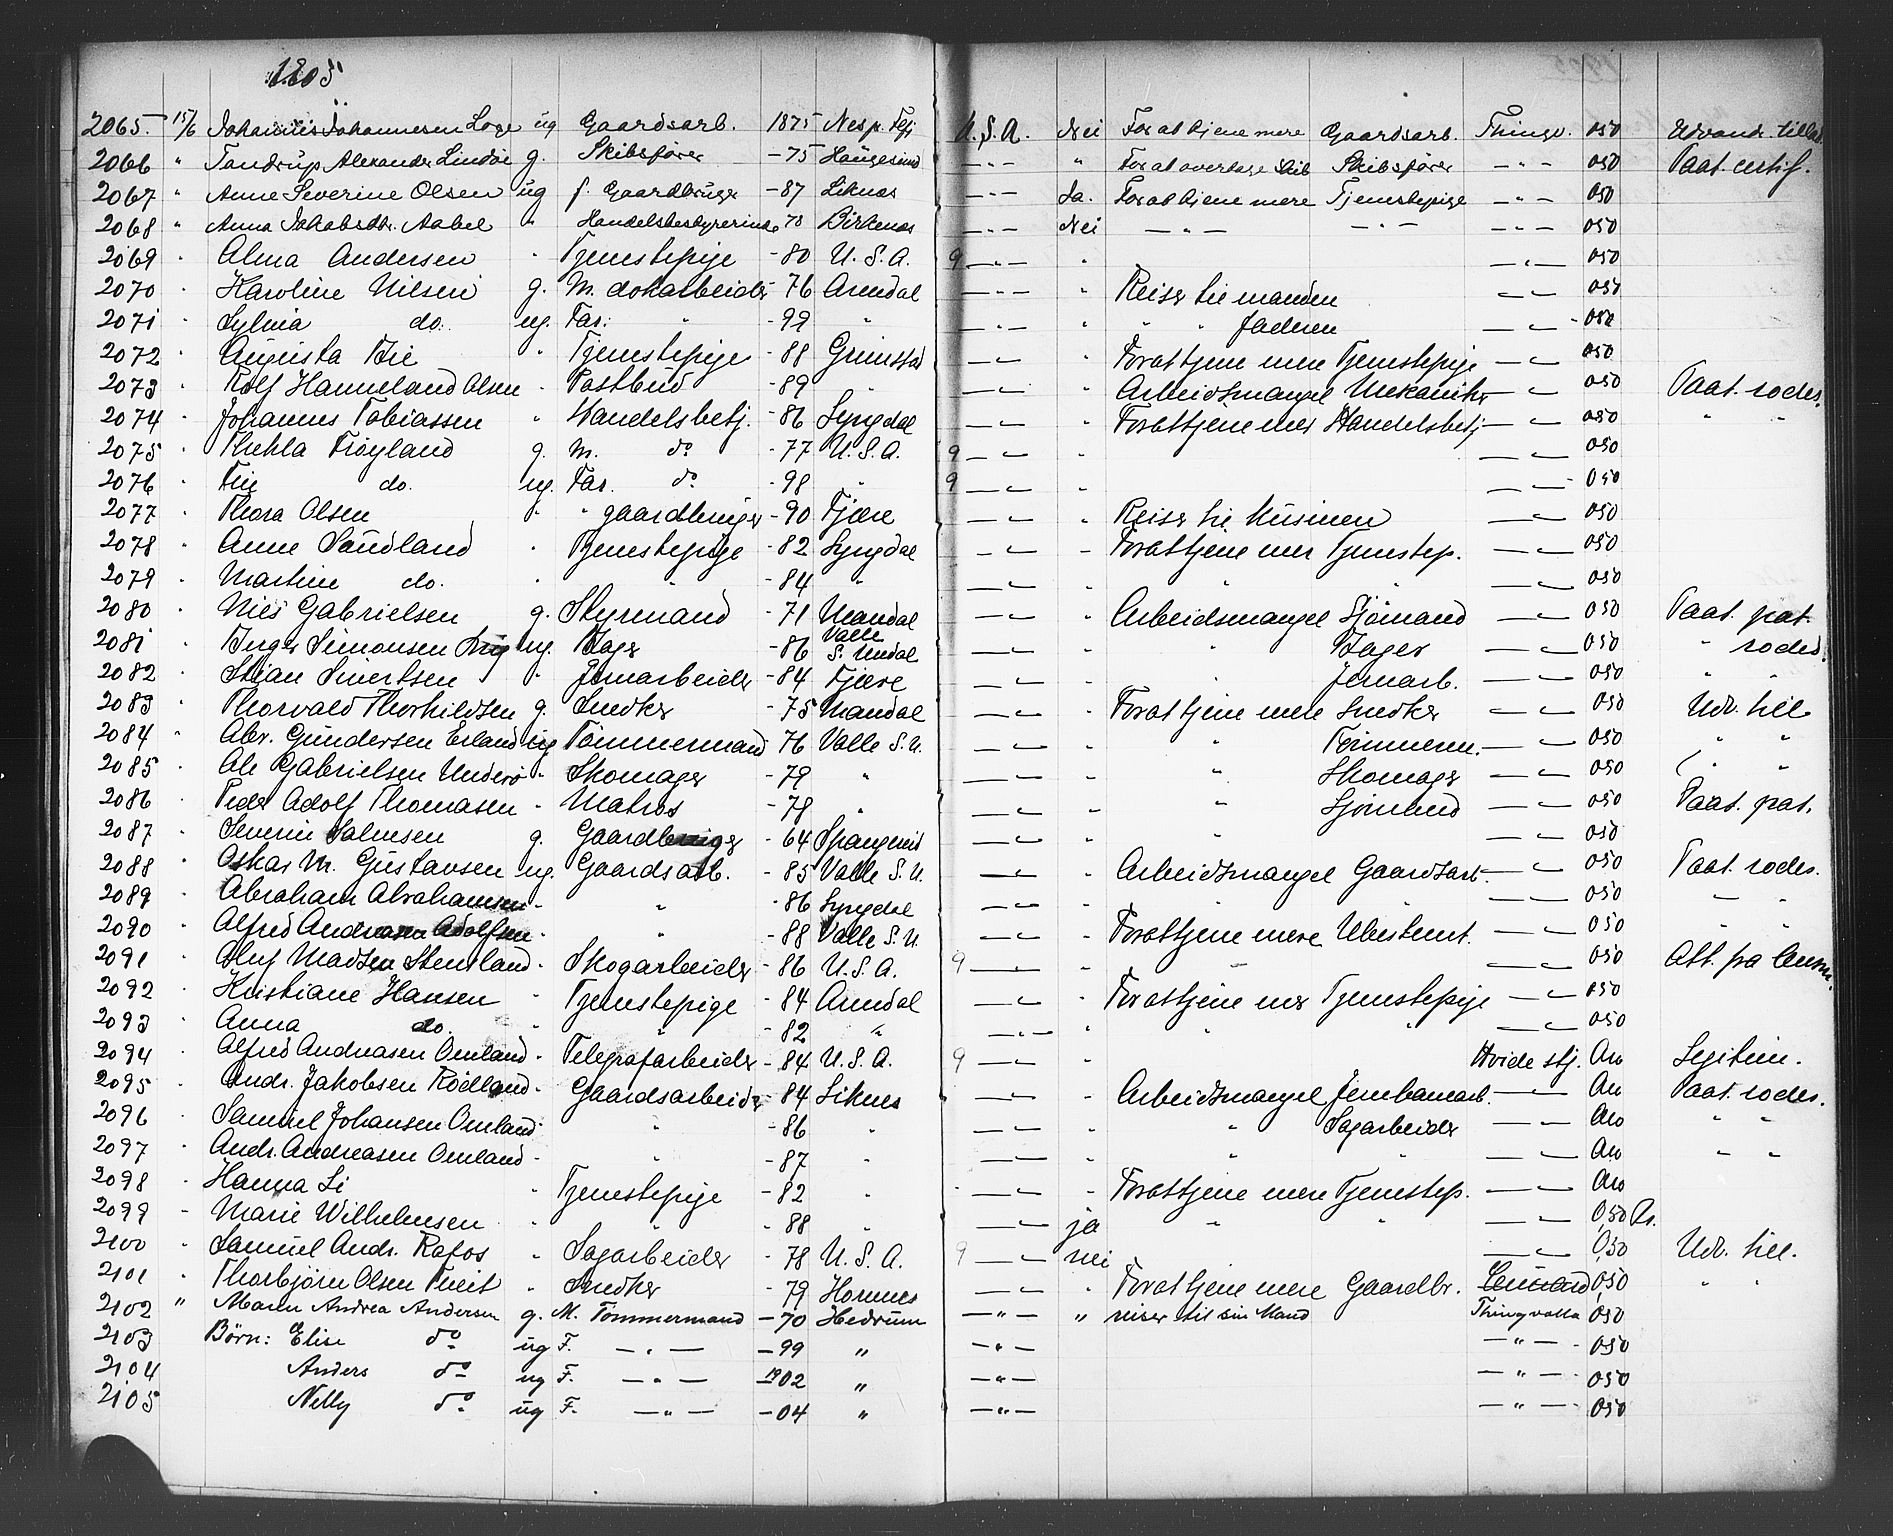 1905
2065. 15/6 Johannes Johannesen Loge ug Gaardsarb. 1875 Nesp. Fgj U.S.A. Nei For at tjene mere Gaardsarb. Thingv. 050 Udvandr. tillad.
2066 " Tandrup Alexander Lindöe g. Skibsfører -75 Haugesund -"- " For at overtage Skib Skibsfører -"- 050 Paat. certif.
2067 " Anne Severine Olsen ug f. Gaardbruger -87 Liknes -"- Ja. For at tjene mere Tjenestepige -"- 050
2068 " Anna Jakobsdtr. Aabel " Handelsbestyrerinde 78 Birkenes -"- Nei -"- -"- -"- 050
2069 " Alma Andersen " Tjenestepige -80 U.S.A. 9 -"- " -"- 050
2070 " Karoline Nilsen g. M. dokarbeider 76 Arendal -"- " Reiser til manden -"- 050
2071 " Sylvia do. ug. Far. " -99 " -"- " " " faderen -"- 050
2072 " Augusta Fie " Tjenestepige -88 Grimstad -"- " Forat tjene mere Tjenestepige -"- 050
2073 " Rolf Hanneland Olsen " Postbud -89 " -"- " Arbeidsmangel Mekaniker -"- 050 Paat. rodes.
2074 " Johannes Tobiassen " Handelsbetj. -86 Lyngdal -"- " Forat tjene mer Handelsbetj -"- 050 " "
2075 " Thekla Frøyland g. M. do -77 U.S.A. 9 -"- " -"- 050
2076 " Fie do. ug. Far. do -98 " 9 -"- " -"- 050
2077 " Thora Olsen " " gaardbruger -90 Fjære -"- " Reiser til Kusinen -"- 050
2078 " Anne Sandland " Tjenestepige -82 Lyngdal -"- " Forat tjene mer Tjenestep. -"- 050
2079 " Martine do. " " -84 " -"- " -"- 050
2080 " Nies Gabrielsen g. Styrmand -71 Mandal -"- " Arbeidsmangel Sjömand -"- 050 Paat. pat.
2081 " Birger Simonsen ug. Bager -86 Valle S. Undal -"- " " Bager -"- 050 " rodes.
2082 " Stian Sivertsen " Jernarbeider -84 Fjære -"- " " Jernarb. -"- 050 " "
2083 " Thorvald Thorkildsen g. Snedker -75 Mandal -"- " Forat tjene mere Snedker -"- 050 Udv. till.
2084 " Abr. Gundersen Erland ug Tömmermand 76 Valle S.U. -"- " " Tömmerm. -"- 050 " "
2085 " Ale Gabrielsen Underö " Skomager -79 " -"- " " Skomager -"- 050 " "
2086 " Peder Adolf Thomasen " Matros -78 " -"- " " Sjömand -"- 050 Paat. pat.
2087 " Severin Salvesen g. Gaardbruger -64 Spangereid -"- " " -"- 050
2088 " Oskar M. Gustavsen ug. Gaardsarb. -85 Valle S.U. -"- " Arbeidsmangel Gaardsarb. -"- 050 Paat. rodes.
2089 " Abraham Abrahamsen " " -86 Lyngdal -"- " " " -"- 050 " "
2090 " Alfred Andreasen Adolfsen " " -88 Valle S.U. -"- " Forat tjene mere Ubestemt. -"- 050 " "
2091 " Oluf Madsen Stensland " Skogarbeider -86 U.S.A. 9 -"- " -"- 050 Att. fra
2092 " Kristiane Hansen " Tjenestepige -84 Arendal -"- " Forat tjene mer Tjenestepige -"- 050
2093 " Anna do. " " -82 " -"- " " " -"- 050
2094 " Alfred Andreasen Omland " Telegrafarbeider -84 U.S.A. 9 -"- " Hvide stj. An Legitim.
2095 " Andr. Jakobsen Rödland " Gaardsarbeider 84 Liknes -"- " Arbeidsmangel Jernbanearb. -"- An Paat. rodes.
2096 " Samuel Johansen Omland " " -86 " -"- " " Sagarbeider -"- An " "
2097 " Andr. Andreasen Omland " " -87 " -"- " " " -"- An " "
2098 " Hanna Li " Tjenestepige -82 " -"- " Forat tjene mere Tjenestep. -"- An
2099 " Marie Wilhelmsen " " -88 " -"- ja " " -"- 050
2100 " Samuel Andr. Rafos " Sagarbeider -78 U.S.A. 9 -"- nei -"- 050 Udv. till.
2101 " Thorbjörn Olsen Tveit " Snedker -79 Hornnes -"- " Forat tjene mere Gaardbr. 050 " "
2102 " Maren Andrea Andersen g. M. Tømmermand -70 Hedrum -"- " reiser til sin Mand Thingvalla 050
2103 Börn: Elise do ug F. -"- -99 " -"- -"- 050
2104 Anders do ug F. -"- 1902 " -"- -"- 050
2105 Nelly do ug F. -"- -04 " -"- -"- 050